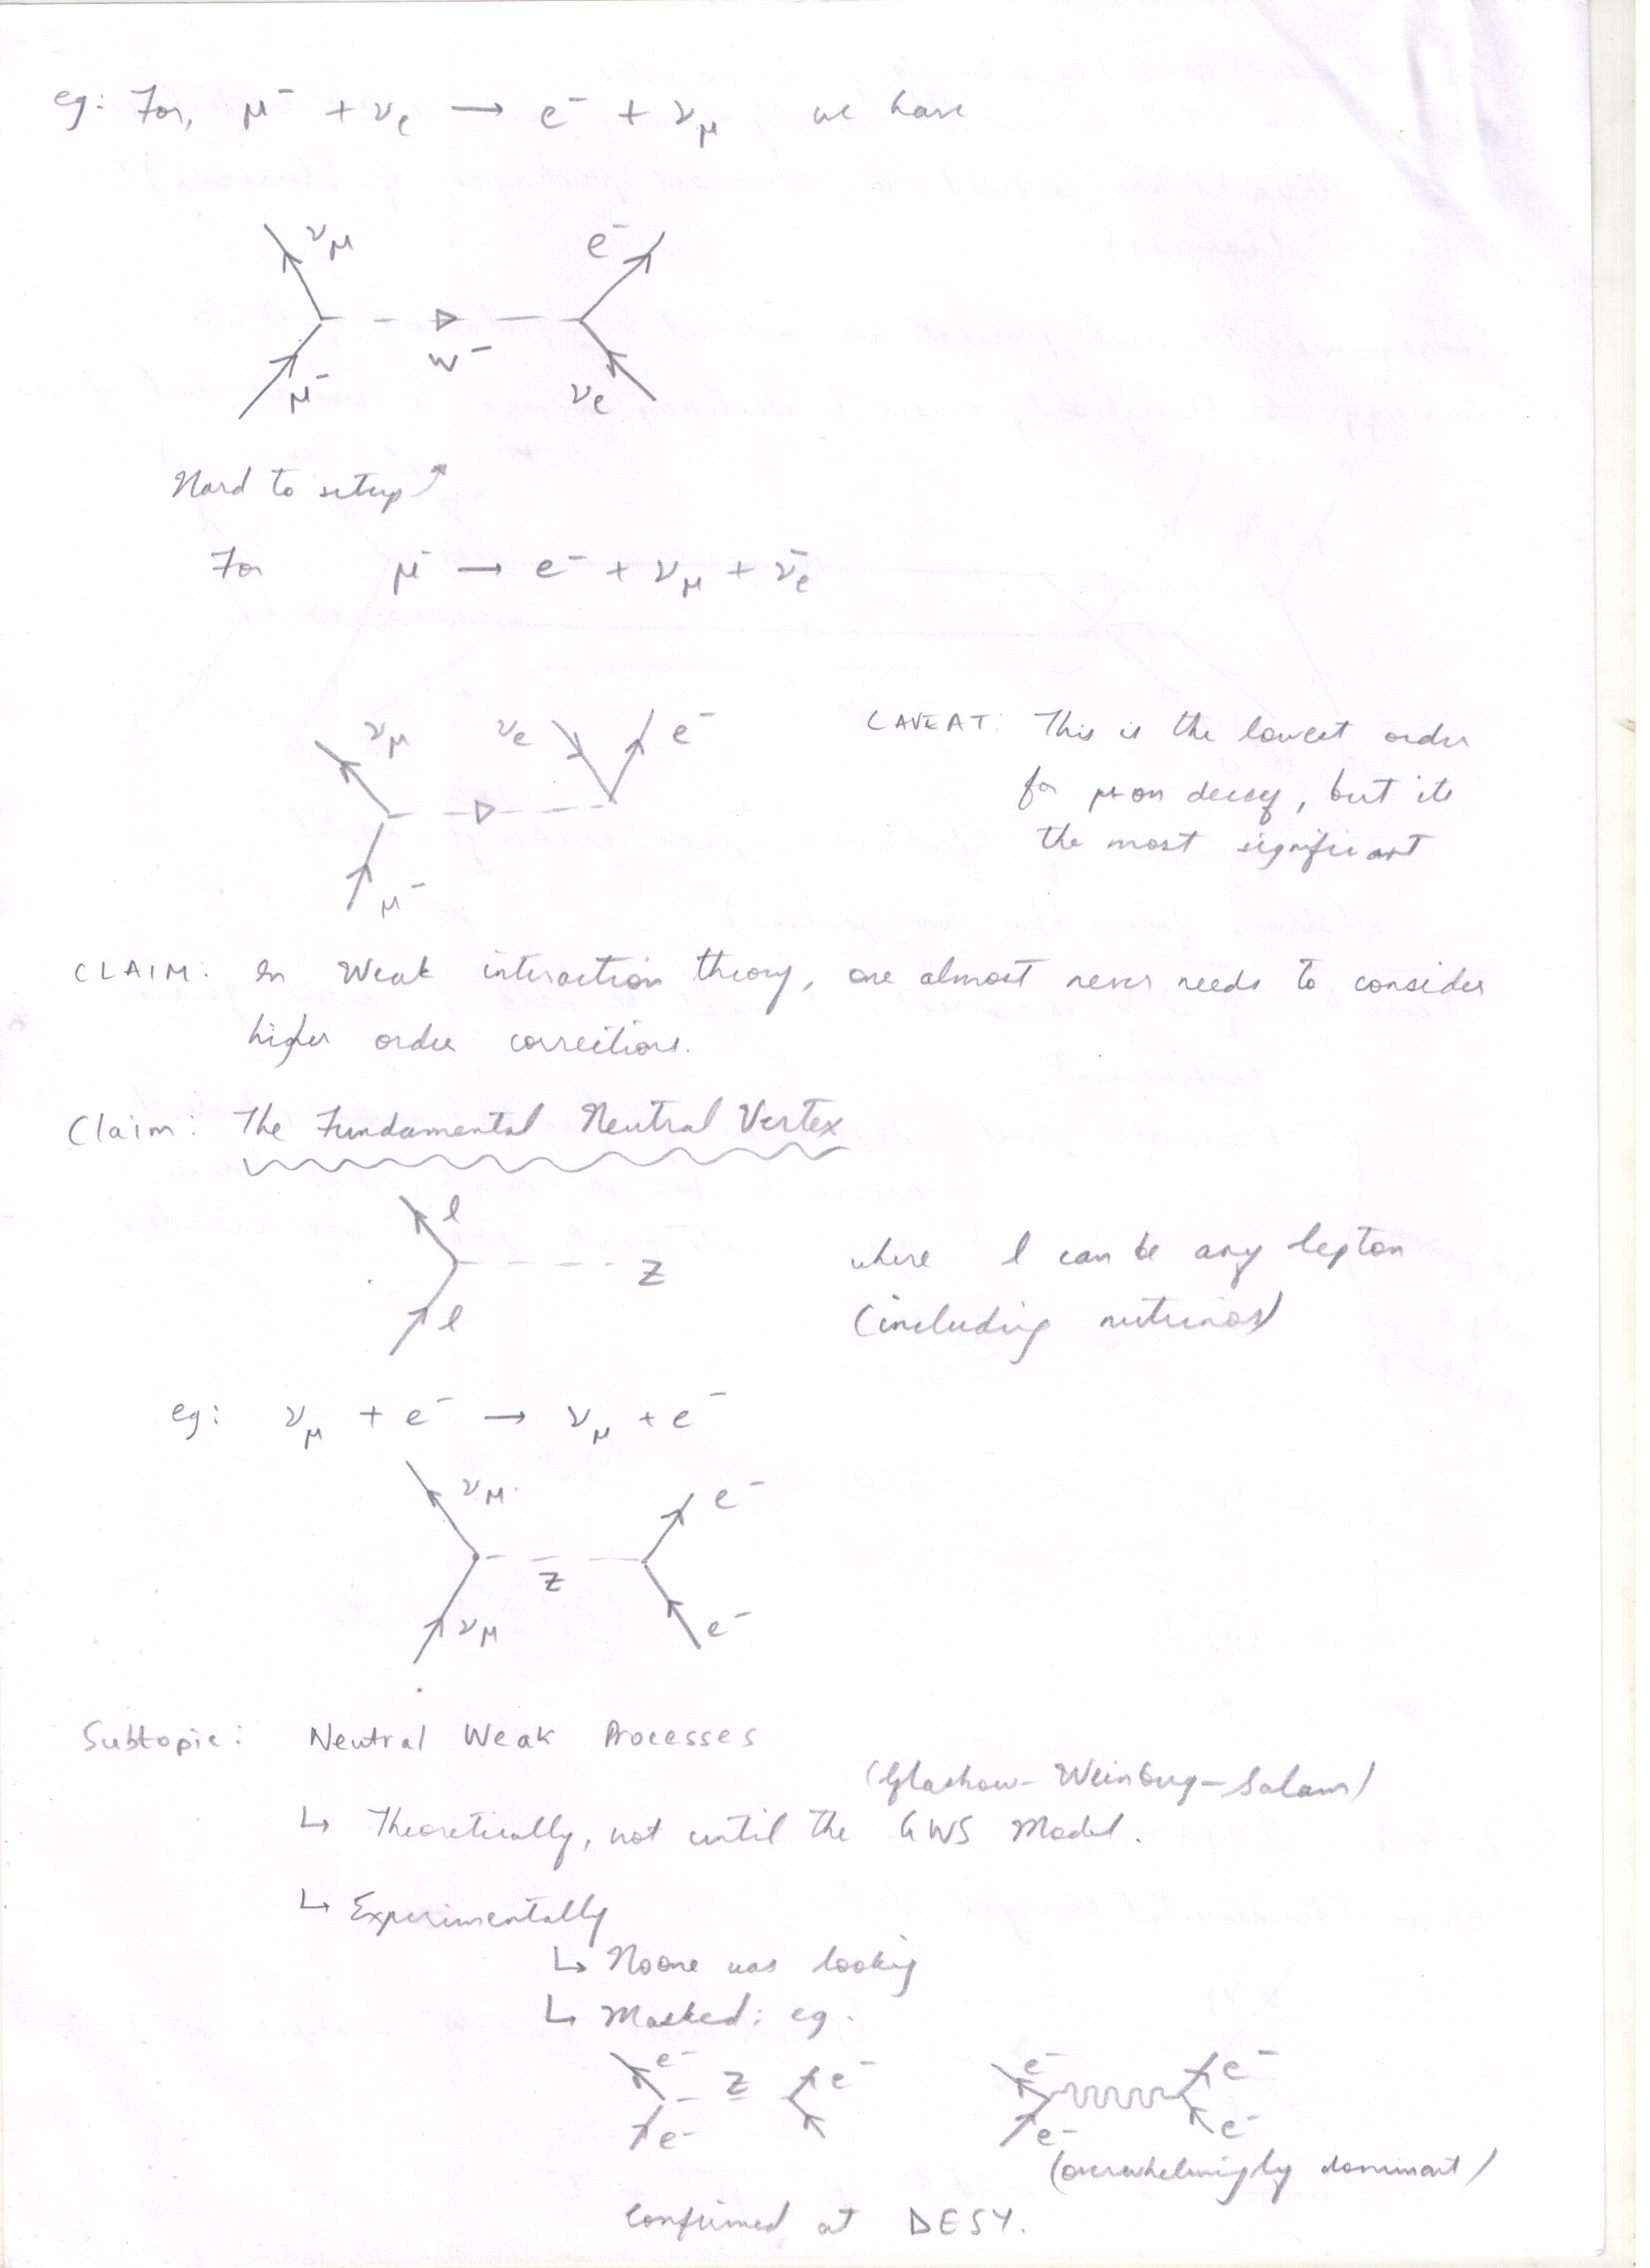 eg: For, μ⁻ + ν_e → e⁻ + ν_μ we have
ν_μ e⁻
W⁻
μ⁻ ν_e
Hard to setup ↗
For μ⁻ → e⁻ + ν_μ + ν̄_e
ν_μ ν_e e⁻
μ⁻
CAVEAT: This is the lowest order
for μon decay, but its
the most significant
CLAIM: In Weak interaction theory, one almost never needs to consider
higher order corrections.
Claim: The Fundamental Neutral Vertex
l
Z
l
where l can be any lepton
(including nutrinos)
eg: ν_μ + e⁻ → ν_μ + e⁻
ν_μ e⁻
Z
ν_μ e⁻
Subtopic: Neutral Weak Processes
(Glashow-Weinberg-Salam)
↳ Theoretically, not until the GWS Model.
↳ Experimentally
↳ Noone was looking
↳ Masked; eg.
e⁻ Z e⁻ e⁻ e⁻
e⁻ e⁻ e⁻
(overwhelmingly dominant)
Confirmed at DESY.